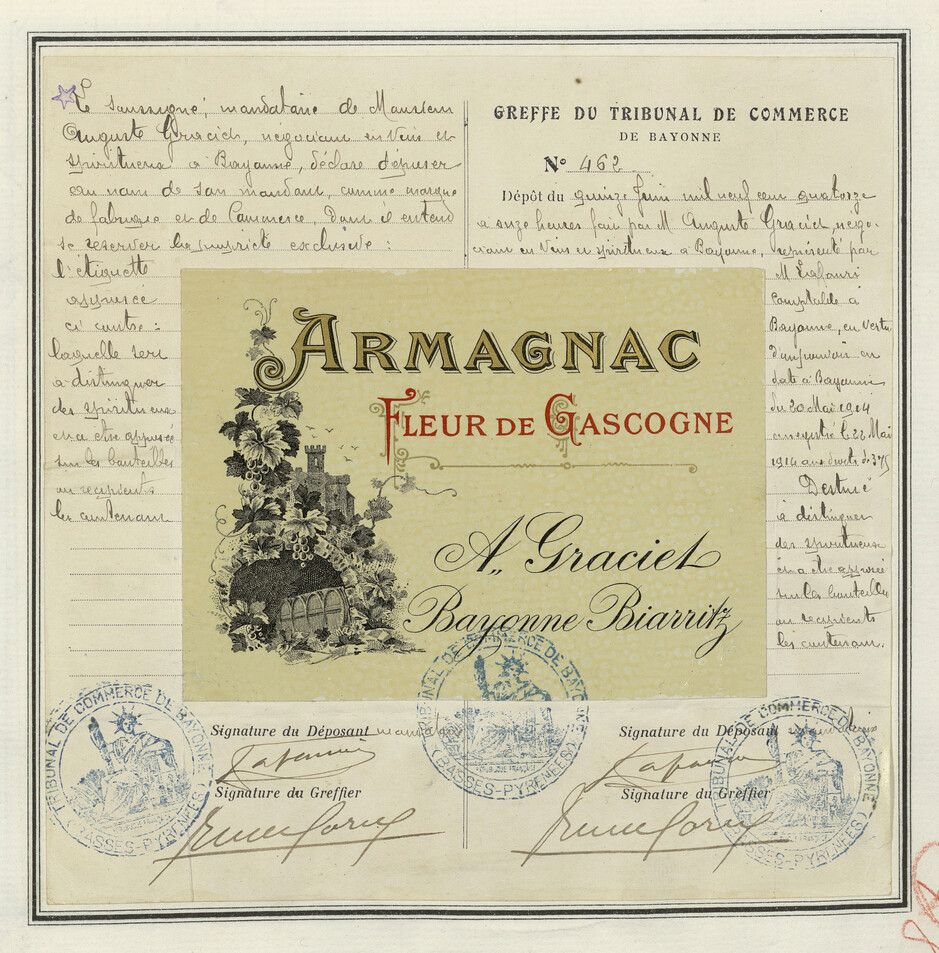 Le soussigné, mandataire de Monsieur
Auguste Graciet, négociant en Vins et
spiritueux à Bayonne, déclare déposer
au nom de son mandant, comme marque
de fabrique et de Commerce, dont il entend
se réserver la propriété exclusive :
l'étiquette
apposée
ci contre :
laquelle sert
à distinguer
des spiritueux
et a être apposée
sur les bouteilles
ou recipients
les contenant
GREFFE DU TRIBUNAL DE COMMERCE
DE BAYONNE
N° 462
Dépôt du quinze Juin mil neuf cent quatorze
à seize heures fait par M. Auguste Graciet, négo-
ciant en Vins et spiritueux à Bayonne, représenté par
M
comptable à
Bayonne, en vertu
d'un pouvoir en
date à Bayonne
du 20 Mai 1914
enregistré le 22 Mai
1914 aux droits de 3.75
Destiné
à distinguer
des spiritueux
et a être apposée
sur les bouteilles
ou recipients
les contenant.
ARMAGNAC
FLEUR DE GASCOGNE
A. Graciet
Bayonne Biarritz
Signature du Déposant
Signature du Greffier
Signature du Déposant
Signature du Greffier
TRIBUNAL DE COMMERCE DE BAYONNE
(BASSES-PYRENEES)
TRIBUNAL DE COMMERCE DE BAYONNE
(BASSES-PYRENEES)
TRIBUNAL DE COMMERCE DE BAYONNE
(BASSES-PYRENEES)